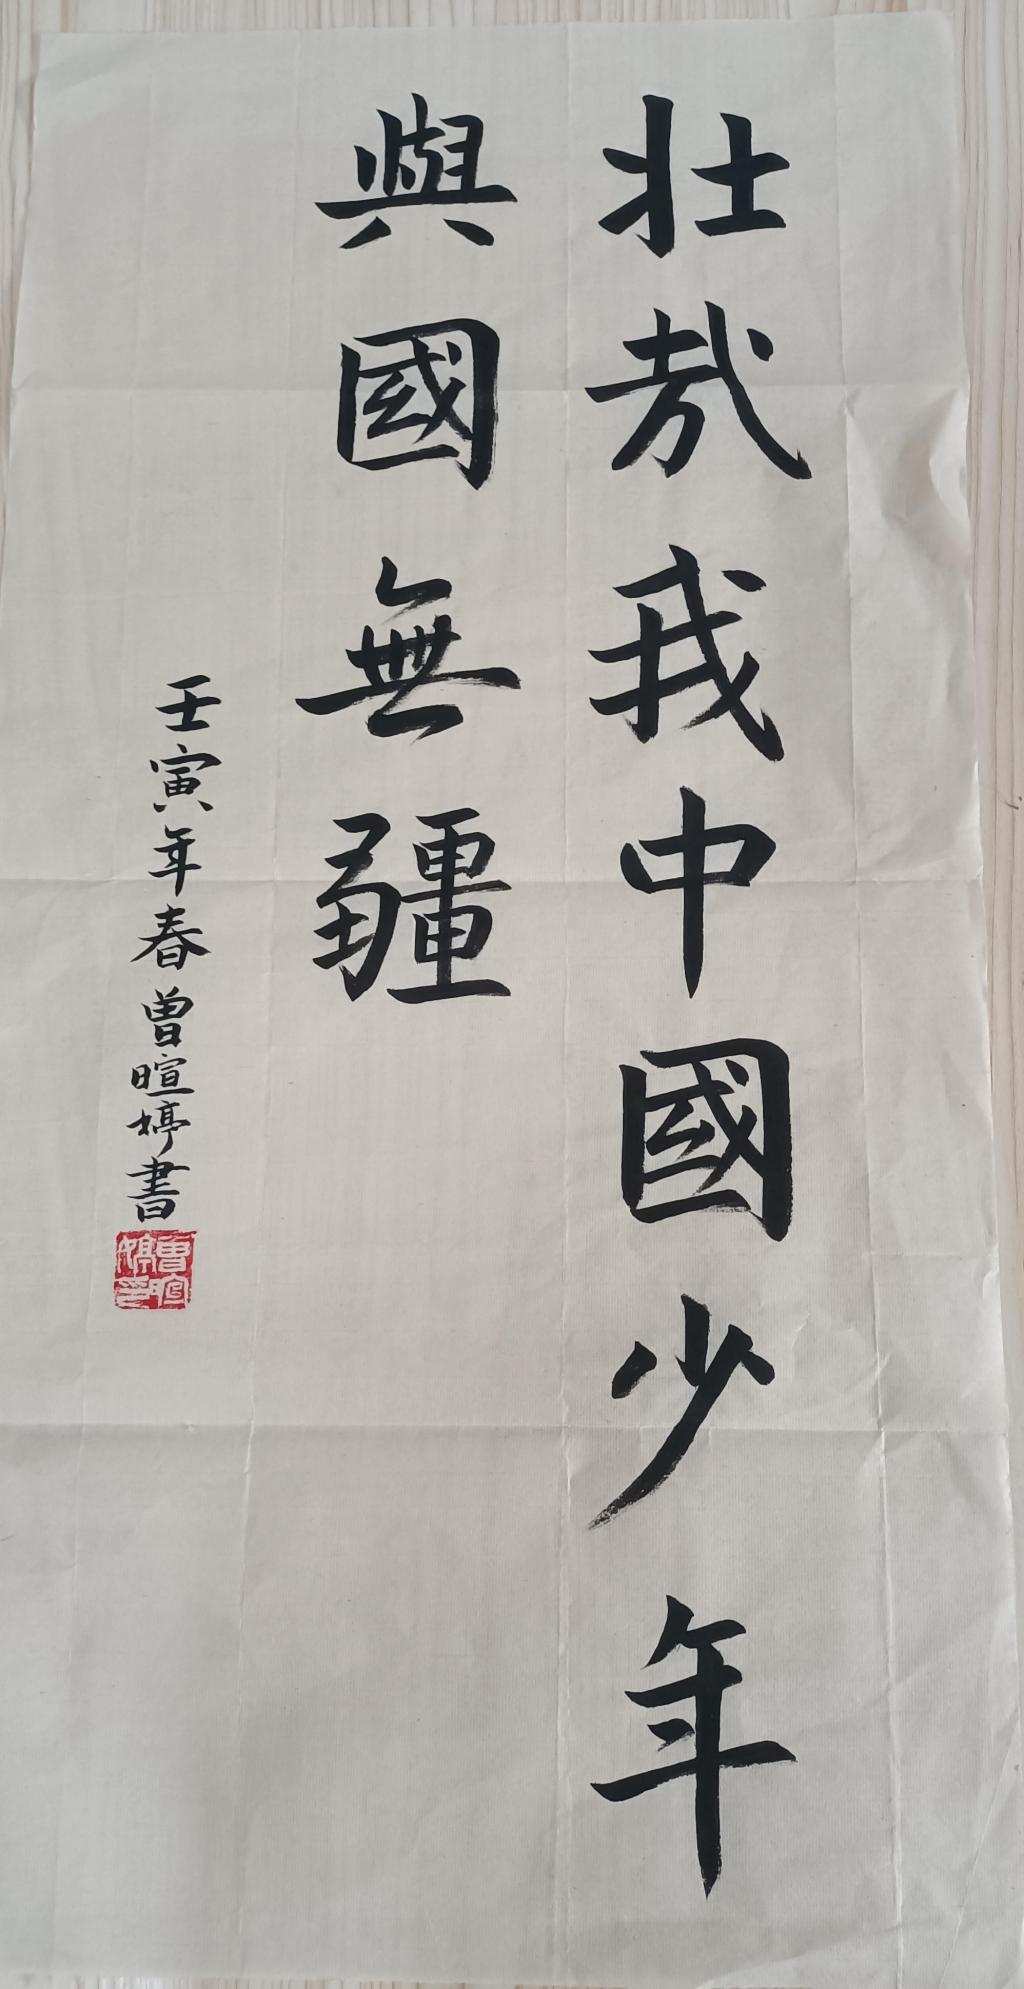 壯哉我中國少年
與國無疆
壬寅年春曾暄婷書
曾暄婷印